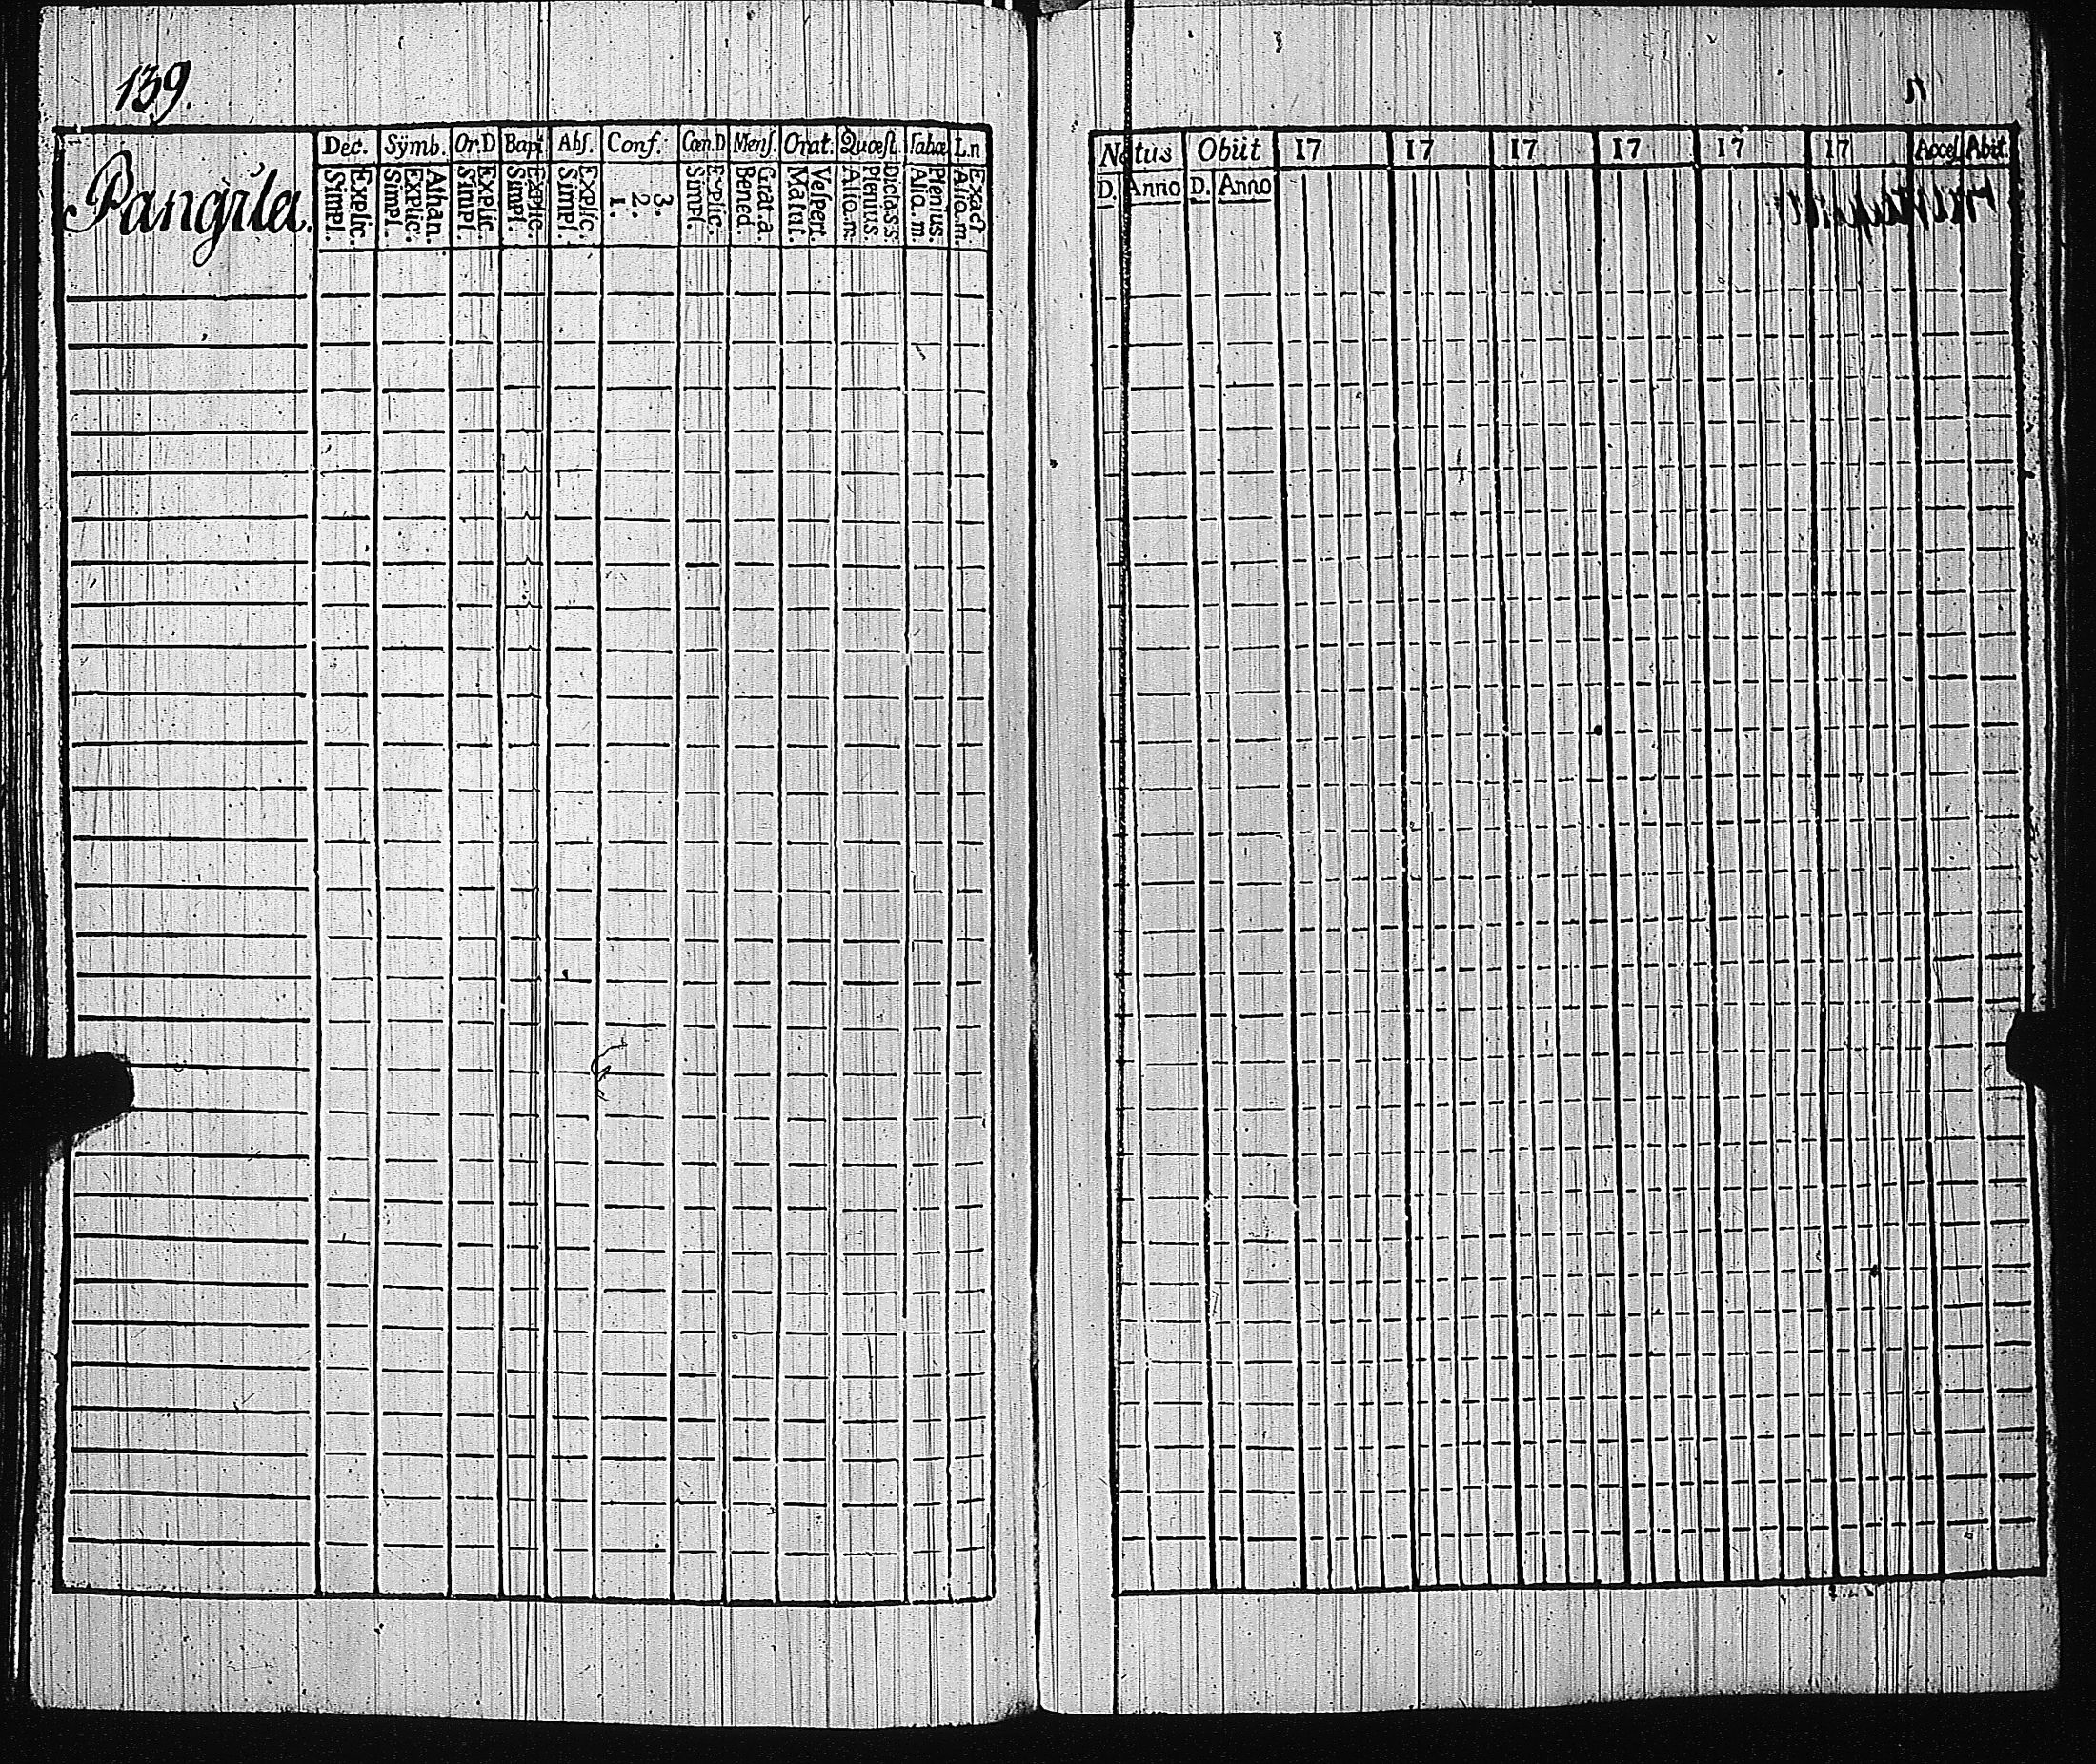 139.
Pangila.
Dec. Sÿmb. Or.D Bapt. Abſ. Conf. Cœn.D Menſ. Orat. Quæst. Tabæ L.n
Explic. Simpl.
Athan. Explic. Simpl.
Explic. Simpl.
Explic. Simpl.
Explic. Simpl.
3. 2. 1.
Explic. Simpl.
Grat.a. Bened.
Veſpert. Matut.
Dicta.ss. Plenius. Alio.m.
Plenius. Alia.m.
Exact Alio.m.
Natus Obiit 17 17 17 17 17 17 Acceſ Abit
D. Anno D. Anno